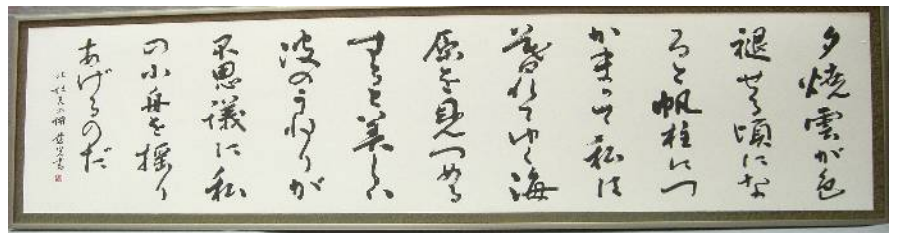 夕焼雲が色
褪せる頃にな
ると帆柱につ
かまって私は
暮れてゆく海
原を見つめる
すると美しい
波のうねりが
不思議に私
の小舟を揺り
あげるのだ